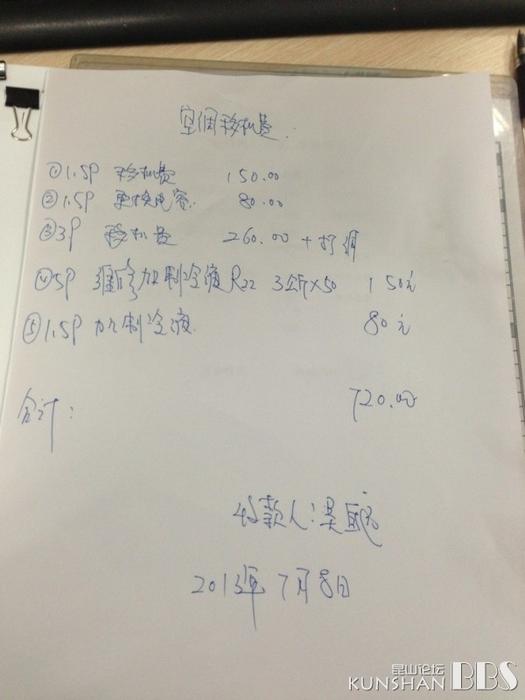 空调移机费:
①1.5P 移机费 150.00
②1.5P 更换电容. 80.00
③3P 移机费 260.00 + 打洞
④5P 维修加制冷液R22 3公斤×50 150元
⑤1.5P 加制冷液 80元
合计: 720.00
收款人:吴
2013年7月8日
昆山论坛
KUNSHAN BBS